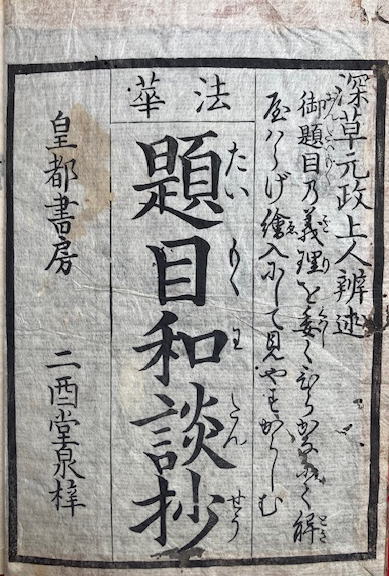 深草元政上人辨述
御題目乃義理を委くひらかなにて解
屋ハらげ繪入にして見やすからしむ
法華
題目和談抄
たいもくわたんせう
皇都書房　二酉堂泉梓